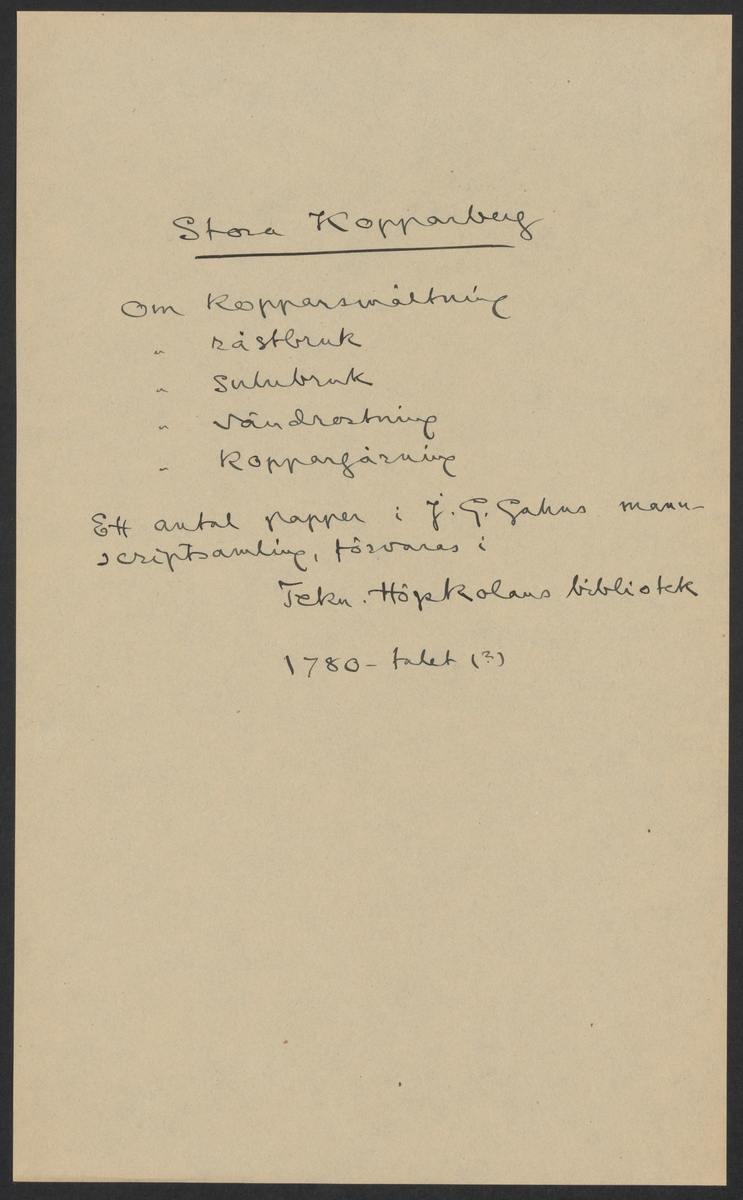 Stora Kopparberg
Om Kopparsmältning
" råstbruk
" sulubruk
" Vändrostning
" Koppargärning
Ett antal papper i J. G. Gahns manu-
scriptsamling, förvaras i
Tekn. Högskolans bibliotek
1780-talet (?)